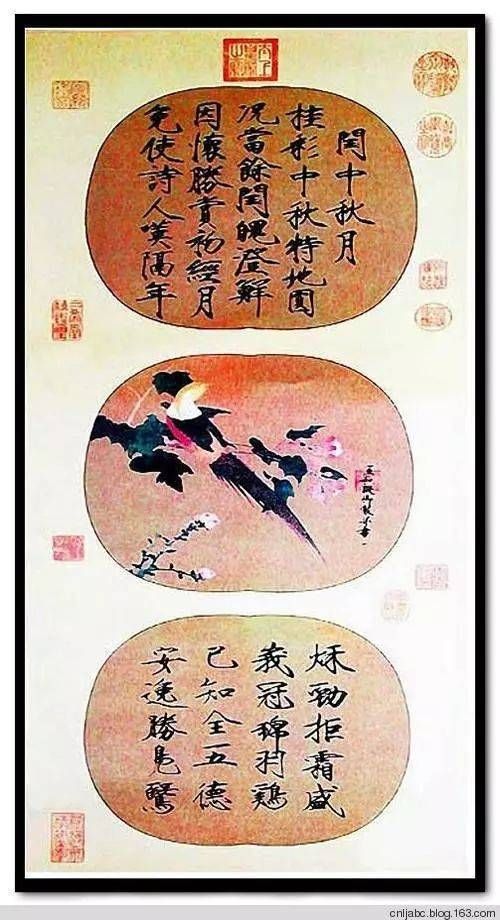 閏中秋月
桂彩中秋特地圓
況當餘閏魄澄鮮
因懷勝賞初經月
免使詩人嘆隔年
宣和殿御製并書
秋勁拒霜盛
峩冠錦羽鷄
已知全五德
安逸勝鳧鷖
cnljabc.blog.163.com